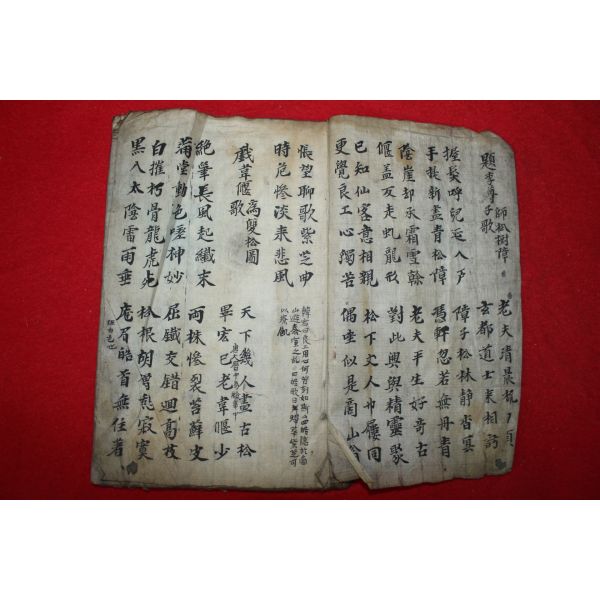 題李尊師松樹障
子歌
老夫清晨梳白頭
玄都道士來相訪
握髮呼兒延入戶
手提新畫青松障
障子松林靜杳冥
憑軒忽若無丹青
陰崖却承霜雪幹
偃盖反走虬龍形
老夫平生好奇古
對此興與精靈聚
已知仙客意相親
更覺良工心獨苦
松下丈人巾屨同
偶坐似是商山翁
悵望聊歌紫芝曲
時危慘淡來悲風
戲韋偃為雙松圖
歌
天下幾人畫古松
畢宏已老韋偃少
絕筆長風起纖末
滿堂動色嗟神妙
兩株慘裂苔蘚皮
屈鐵交錯迴高枝
白摧朽骨龍虎死
黑入太陰雷雨垂
松根胡僧憩寂寞
庬眉皓首無住著